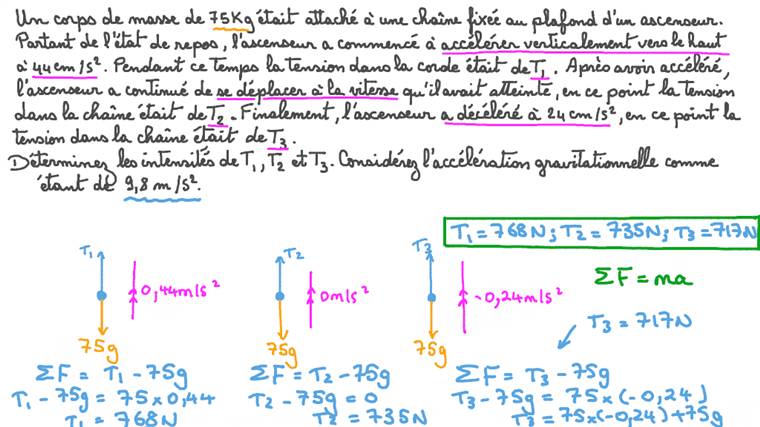 Un corps de masse de 75Kg était attaché à une chaîne fixée au plafond d'un ascenseur.
Partant de l'état de repos, l'ascenseur a commencé à accélérer verticalement vers le haut
à 44cm/s². Pendant ce temps la tension dans la corde était de T₁. Après avoir accéléré,
l'ascenseur a continué de se déplacer à la vitesse qu'il avait atteinte, en ce point la tension
dans la chaîne était de T₂. Finalement, l'ascenseur a décéléré à 24cm/s², en ce point la
tension dans la chaîne était de T₃.
Déterminez les intensités de T₁, T₂ et T₃. Considérez l'accélération gravitationnelle comme
étant de 9,8m/s².
T₁=768N; T₂=735N; T₃=717N
T₁
0,44m/s²
75g
T₂
0m/s²
75g
T₃
-0,24m/s²
75g
ΣF=ma
T₃=717N
ΣF = T₁-75g
T₁-75g = 75×0,44
T₁=768N
ΣF=T₂-75g
T₂-75g=0
T₂=735N
ΣF= T₃-75g
T₃-75g = 75×(-0,24)
T₃=75×(-0,24)+75g